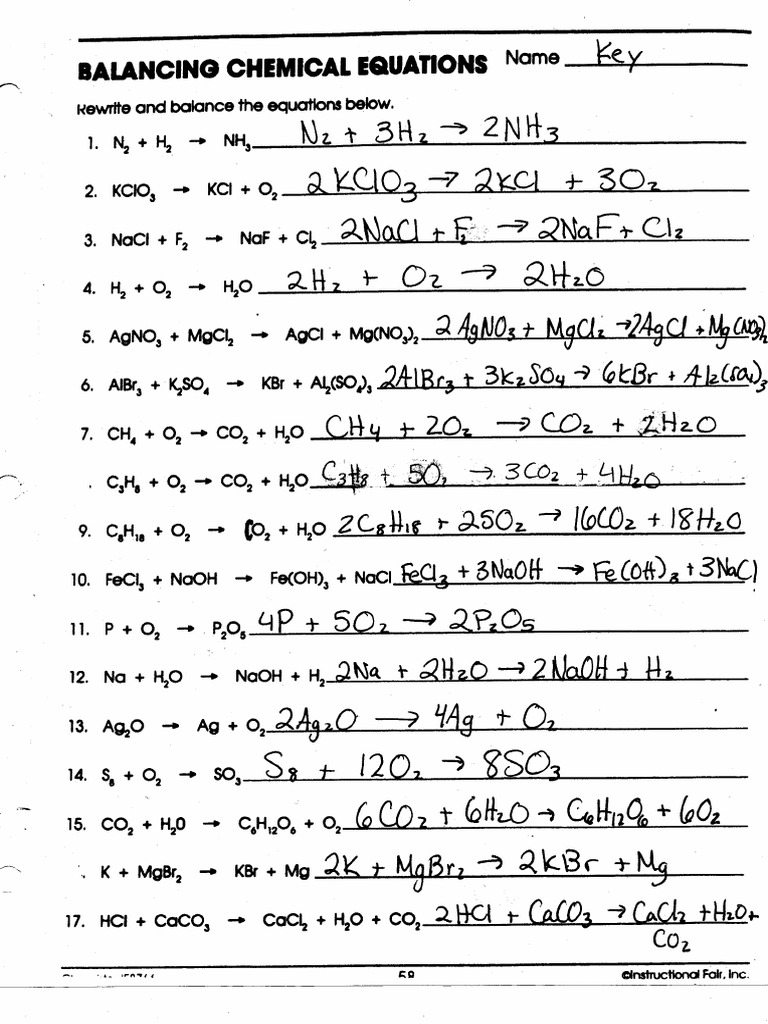 BALANCING CHEMICAL EQUATIONS Name Key
Rewrite and balance the equations below.
1. N₂ + H₂ → NH₃ N₂ + 3H₂ → 2NH₃
2. KClO₃ → KCl + O₂ 2KClO₃ → 2KCl + 3O₂
3. NaCl + F₂ → NaF + Cl₂ 2NaCl + F₂ → 2NaF + Cl₂
4. H₂ + O₂ → H₂O 2H₂ + O₂ → 2H₂O
5. AgNO₃ + MgCl₂ → AgCl + Mg(NO₃)₂ 2AgNO₃ + MgCl₂ → 2AgCl + Mg(NO₃)₂
6. AlBr₃ + K₂SO₄ → KBr + Al₂(SO₄)₃ 2AlBr₃ + 3K₂SO₄ → 6KBr + Al₂(SO₄)₃
7. CH₄ + O₂ → CO₂ + H₂O CH₄ + 2O₂ → CO₂ + 2H₂O
. C₃H₈ + O₂ → CO₂ + H₂O C₃H₈ + 5O₂ → 3CO₂ + 4H₂O
9. C₈H₁₈ + O₂ → CO₂ + H₂O 2C₈H₁₈ + 25O₂ → 16CO₂ + 18H₂O
10. FeCl₃ + NaOH → Fe(OH)₃ + NaCl FeCl₃ + 3NaOH → Fe(OH)₃ + 3NaCl
11. P + O₂ → P₂O₅ 4P + 5O₂ → 2P₂O₅
12. Na + H₂O → NaOH + H₂ 2Na + 2H₂O → 2NaOH + H₂
13. Ag₂O → Ag + O₂ 2Ag₂O → 4Ag + O₂
14. S₈ + O₂ → SO₃ S₈ + 12O₂ → 8SO₃
15. CO₂ + H₂0 → C₆H₁₂O₆ + O₂ 6CO₂ + 6H₂O → C₆H₁₂O₆ + 6O₂
. K + MgBr₂ → KBr + Mg 2K + MgBr₂ → 2KBr + Mg
17. HCl + CaCO₃ → CaCl₂ + H₂O + CO₂ 2HCl + CaCO₃ → CaCl₂ + H₂O +
CO₂
58 ©Instructional Fair, Inc.